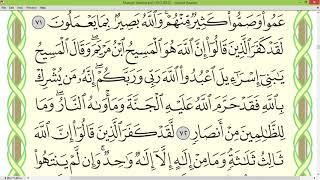 عَمُوا۟ وَصَمُّوا۟ كَثِيرٌ مِّنْهُمْ ۚ وَٱللَّهُ بَصِيرٌۢ بِمَا يَعْمَلُونَ ٧١
لَقَدْ كَفَرَ ٱلَّذِينَ قَالُوٓا۟ إِنَّ ٱللَّهَ هُوَ ٱلْمَسِيحُ ٱبْنُ مَرْيَمَ ۖ وَقَالَ ٱلْمَسِيحُ
يَٰبَنِىٓ إِسْرَٰٓءِيلَ ٱعْبُدُوا۟ ٱللَّهَ رَبِّى وَرَبَّكُمْ ۖ إِنَّهُۥ مَن يُشْرِكْ
بِٱللَّهِ فَقَدْ حَرَّمَ ٱللَّهُ عَلَيْهِ ٱلْجَنَّةَ وَمَأْوَىٰهُ ٱلنَّارُ ۖ وَمَا
لِلظَّٰلِمِينَ مِنْ أَنصَارٍ ٧٢ لَّقَدْ كَفَرَ ٱلَّذِينَ قَالُوٓا۟ إِنَّ ٱللَّهَ
ثَالِثُ ثَلَٰثَةٍ ۘ وَمَا مِنْ إِلَٰهٍ إِلَّآ إِلَٰهٌ وَٰحِدٌ ۚ وَإِن لَّمْ يَنتَهُوا۟